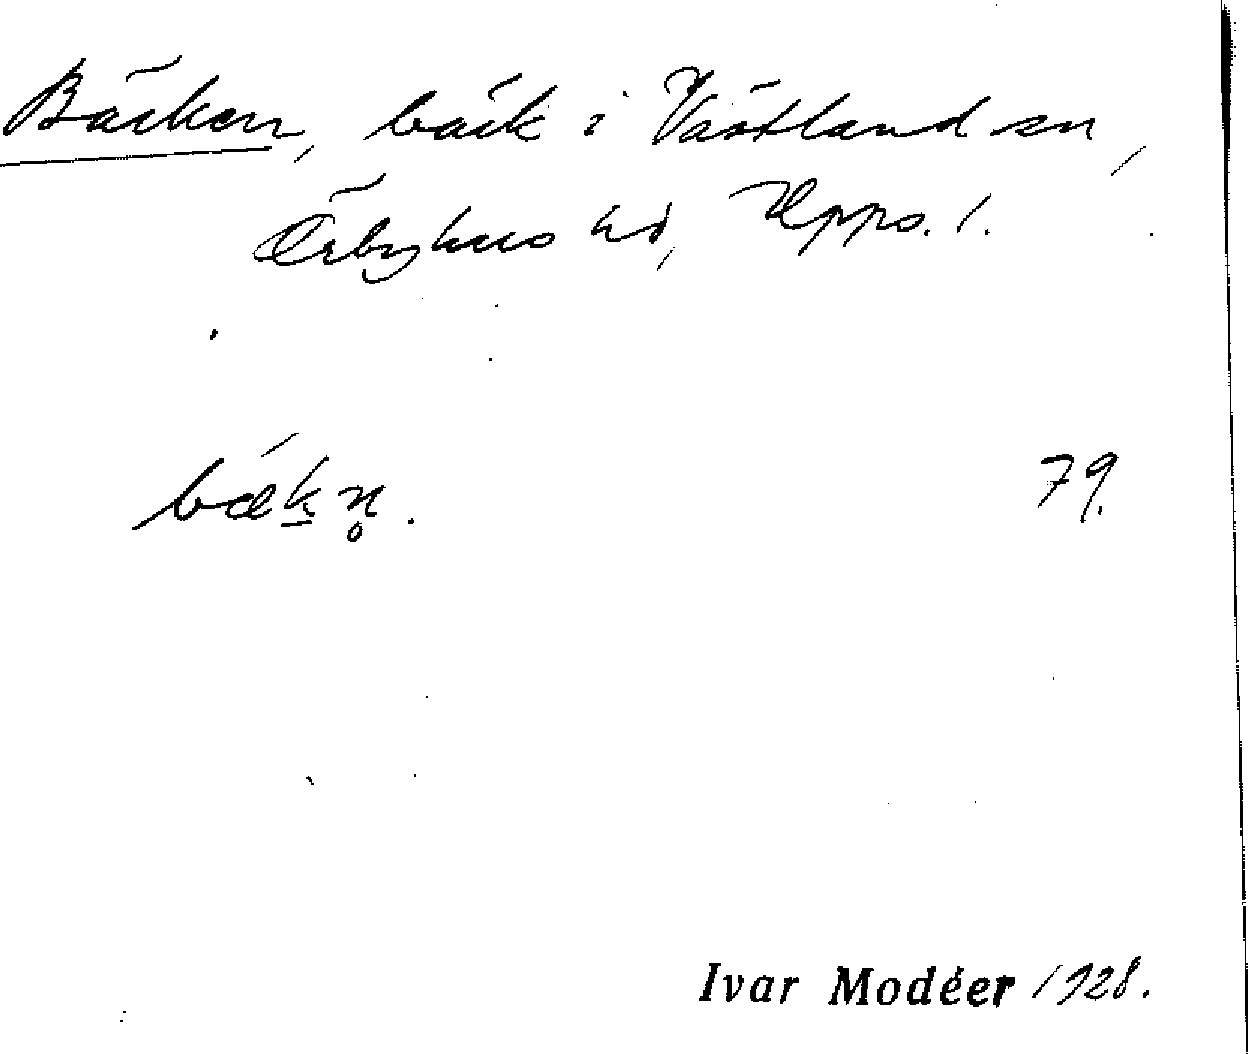 Bäcken, bäck i Västland sn,
Örbyhus hd, Upps. l.
bǽk̲n̥.
79.
Ivar Modéer 1928.